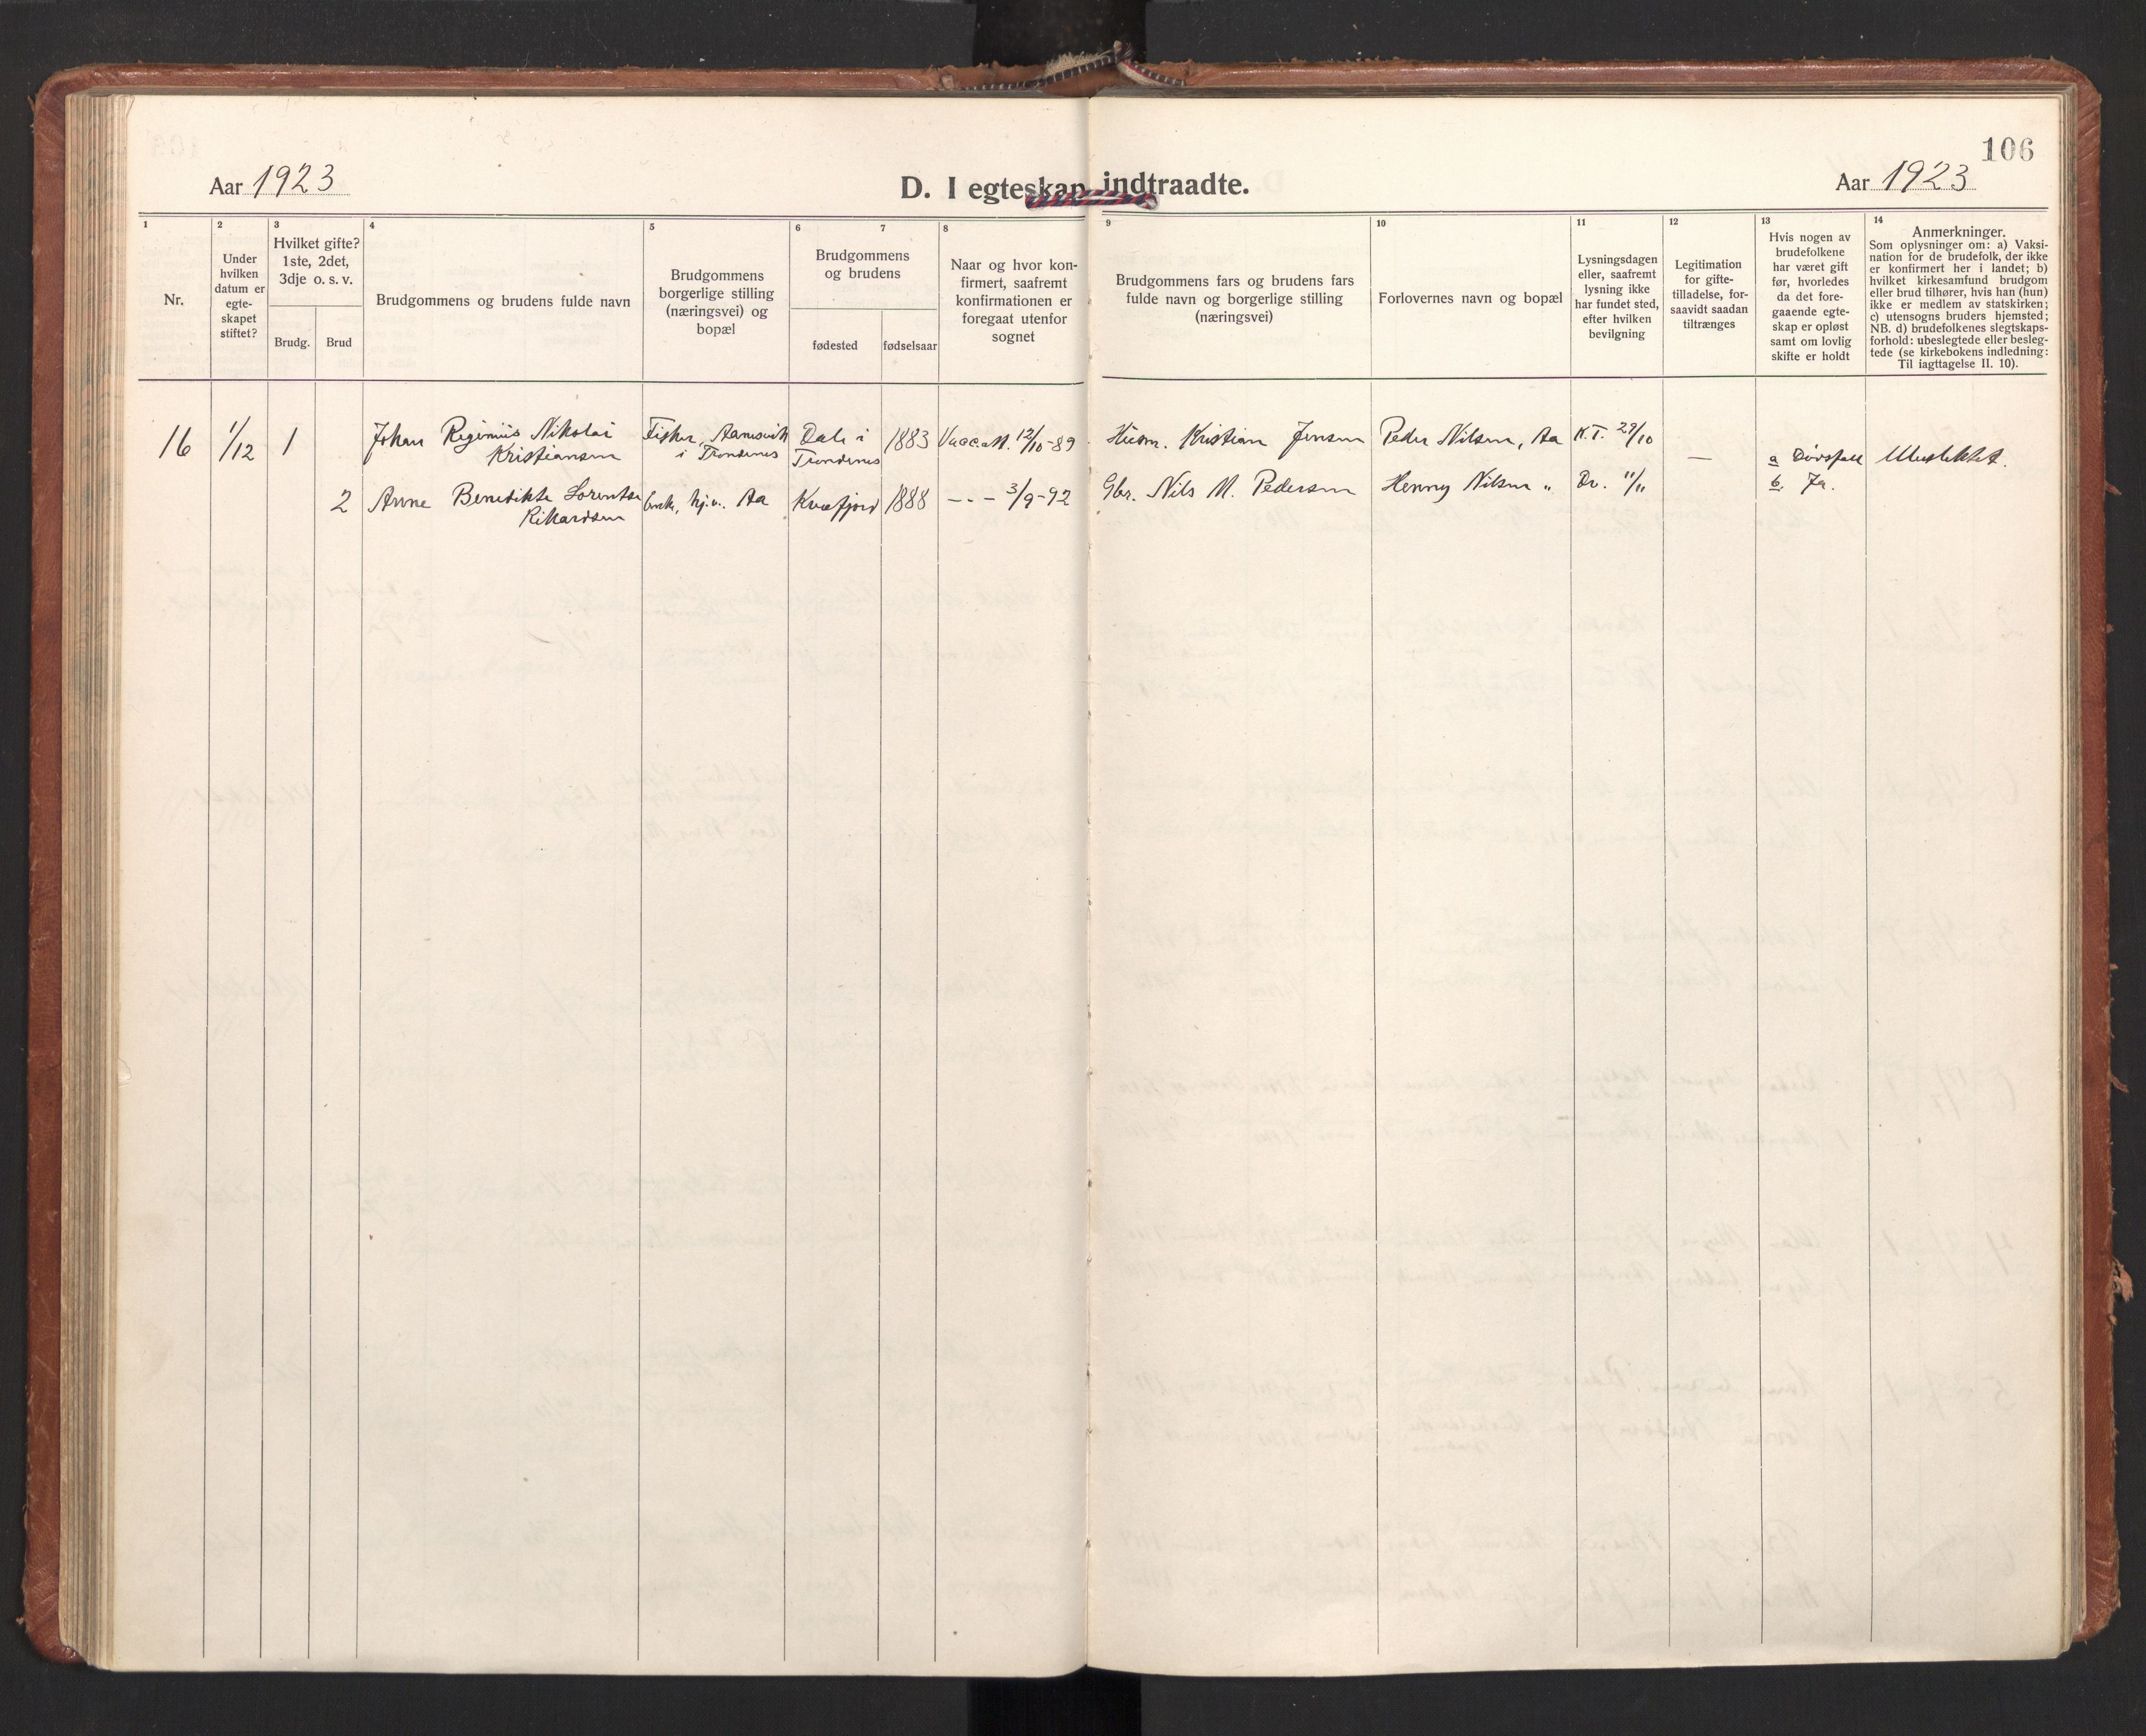 106
Aar 1923
D. I egteskap indtraadte.
Aar 1923
1
2
3
4
5
6
7
8
9
10
11
12
13
14
Nr.
Under
hvilken
datum er
egte-
skapet
stiftet?
Hvilket gifte?
1ste, 2det,
3dje o. s. v.
Brudg.
Brud
Brudgommens og brudens fulde navn
Brudgommens
borgerlige stilling
(næringsvei) og
bopæl
Brudgommens
og brudens
fødested
fødselsaar
Naar og hvor kon-
firmert, saafremt
konfirmationen er
foregaat utenfor
sognet
Brudgommens fars og brudens fars
fulde navn og borgerlige stilling
(næringsvei)
Forlovernes navn og bopæl
Lysningsdagen
eller, saafremt
lysning ikke
har fundet sted,
efter hvilken
bevilgning
Legitimation
for gifte-
tilladelse, for-
saavidt saadan
tiltrænges
Hvis nogen av
brudefolkene
har været gift
før, hvorledes
da det fore-
gaaende egte-
skap er opløst
samt om lovlig
skifte er holdt
Anmerkninger.
Som oplysninger om: a) Vaksi-
nation for de brudefolk, der ikke
er konfirmert her i landet; b)
hvilket kirkesamfund brudgom
eller brud tilhører, hvis han (hun)
ikke er medlem av statskirken;
c) utensogns bruders hjemsted;
NB. d) brudefolkenes slegtskaps-
forhold: ubeslegtede eller besleg-
tede (se kirkebokens indledning:
Til iagttagelse II. 10).
16
1/12
1
Johan Reginius Nikolai
Kristiansen
Fisker, Aanesvik
i Trondenes
Dale i
Trondenes
1883
Vacc. att. 12/10-89
Husm. Kristian Jensen
Peder Nilsen, Aa
K.T. 29/10
—
a Dødsfall
Ubeslektet.
2
Anne Benedikte Lorentse
Rikardsen
Enke, hj.v. Aa
Kvæfjord
1888
- - - 3/9-92
Gbr. Nils M. Pedersen
Henny Nilsen "
Do. 11/11
b. Ja.